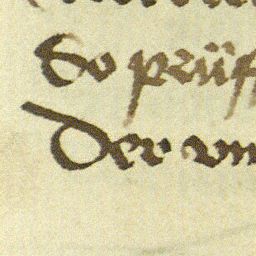 So prüff
Der vn